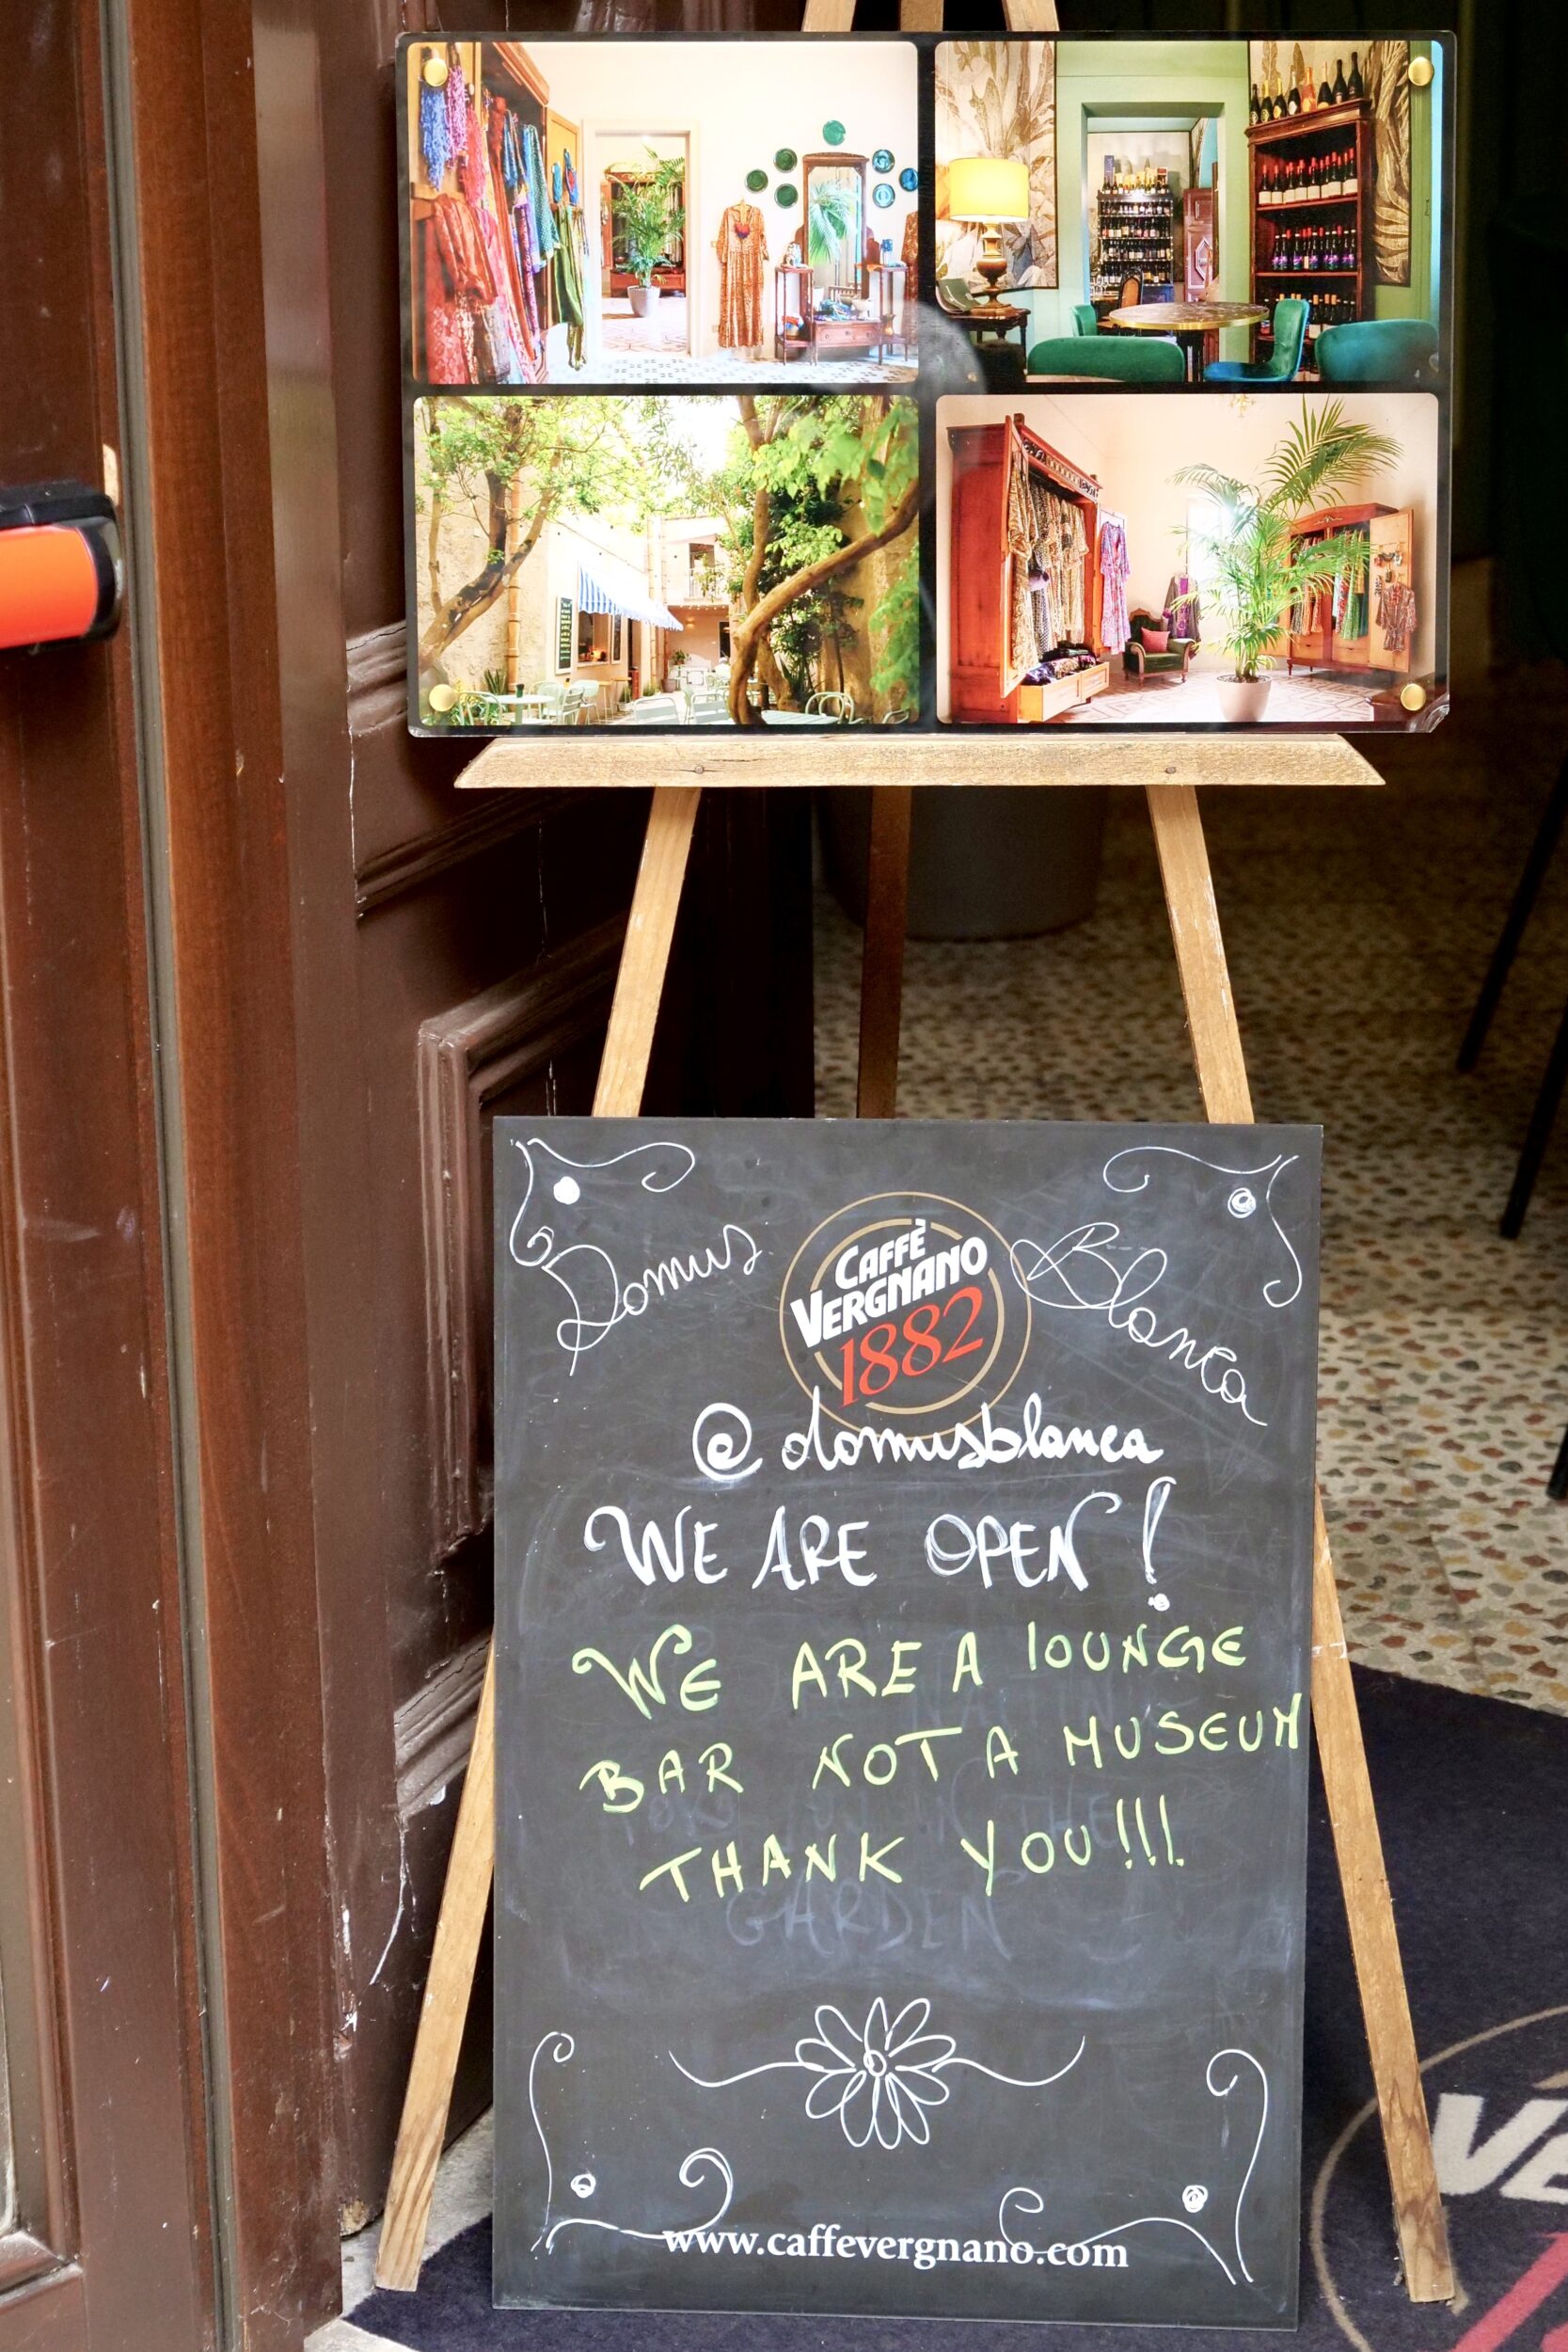 Domus Blanca
CAFFÈ
VERGNANO
1882
@domusblanca
WE ARE OPEN!
WE ARE A lOUNGE
BAR NOT A MUSEUM
THANK YOU!!!
GARDEN
www.caffevergnano.com
VE